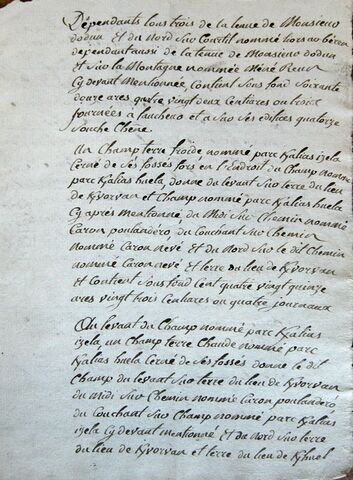 Dépendants tous trois de la tenue de Monsieur
dodun et du Nord Sur Courtil nommé liors ao
dépendant aussi de la tenue de Monsieur dodun
et Sur la Montagne nommée Méné
Cy devant Mentionnée, Contient Sous fond Soixante
douze ares quatre vingt deux Centiares ou trois
journées a faucheur et a Sur Ses édifices quatorze
Souche Chêne.
Un Champ terre froide nommé parc Kalias izela
Cerné de Ses fossés fors en l'Endroit du Champ nommé
parc Kalias huela, donne du levant Sur terre du lieu
de Kvorvan et Champ nommé parc Kalias huela
Cy après Mentionné, du Midi Sur Chemin nommé
Caron poulandero du Couchant Sur Chemin
nommé Caron nevé et du Nord Sur le dit Chemin
nommé Caron nevé et terre du lieu de Kvorvan
et Contient Sous fond Cent quatre vingt quinze
ares vingt trois Centiares ou quatre journaux
Au levant du Champ nommé parc Kalias
izela, un Champ terre Chaude nommé parc
Kalias huela Cerné de Ses fossés donne le dit
Champ du levant Sur terre du lieu de Kvorvan
du Midi Sur Chemin nommé Caron poulandero
du Couchant Sur Champ nommé parc Kalias
izela Cy devant mentionné et du Nord Sur terre
du lieu de Kvorvan et terre du lieu de Khuel